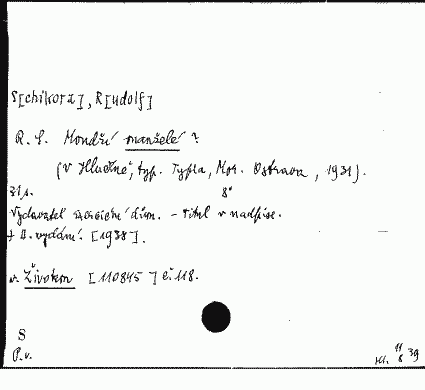 S[chikora], R[udolf]
R. S. Moudří manželé?
(V Hlučíně, typ. Typia, Mor. Ostrava, 1931).
31 s. 8°
Vydavatel exerciční dům. - Titul v nadpise.
+ II. vydání. [1938].
v. Životem [110845] č. 118.
S
P.v.
11 8 39